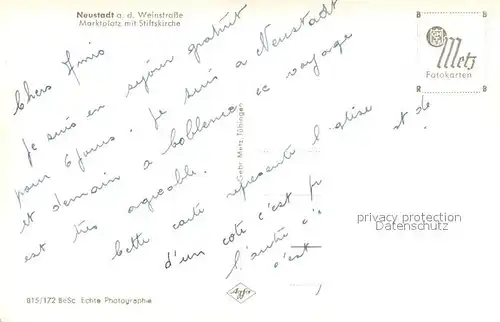 Neustadt a. d. Weinstraße
Marktplatz mit Stiftskirche
Chers Amis
Je suis en séjour gratuit
pour 6 jours. Je suis a Neustadt
et demain a Coblence ce voyage
est très agreable.
Cette carte represente l'église et de
d'un coté c'est pr
l'autre c'
c'est
Gebr. Metz Tübingen
B B
Metz
Fotokarten
R B
privacy protection
Datenschutz
815/172 BeSc Echte Photographie
Agfa